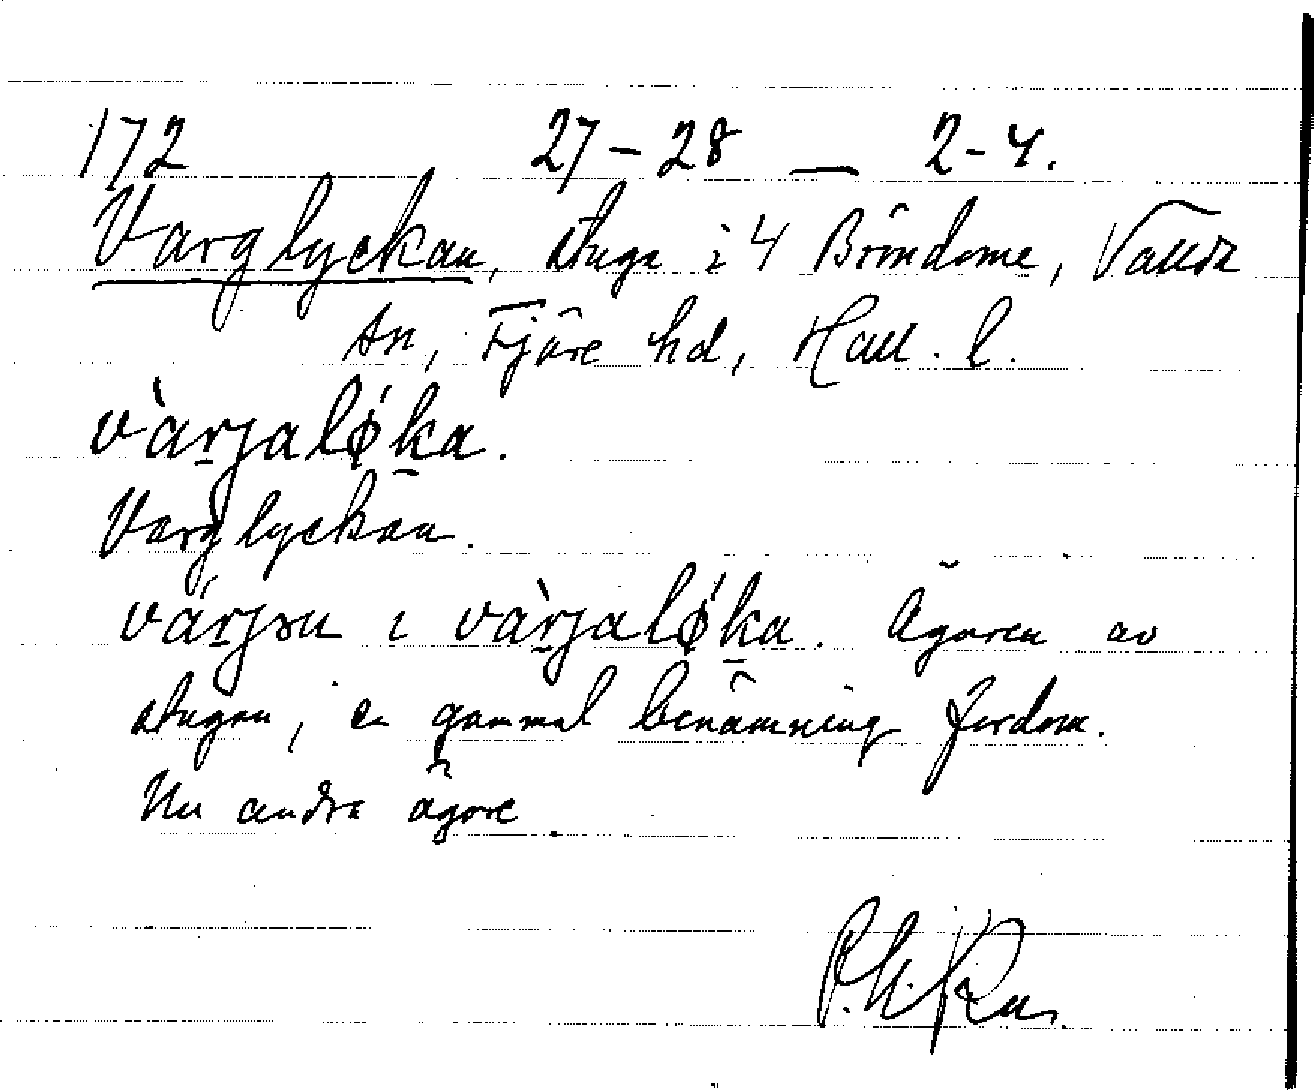 172 27-28 — 2-4.
Varglyckan, stuga i 4 Bröndome, Vallda
sn, Fjäre hd, Hall. l.
vàrjaløka.
Varglyckan.
várjɔn ɩ vàrjaløka. Ägaren av
stugan, en gammal benämning fordom.
Nu andra ägare.